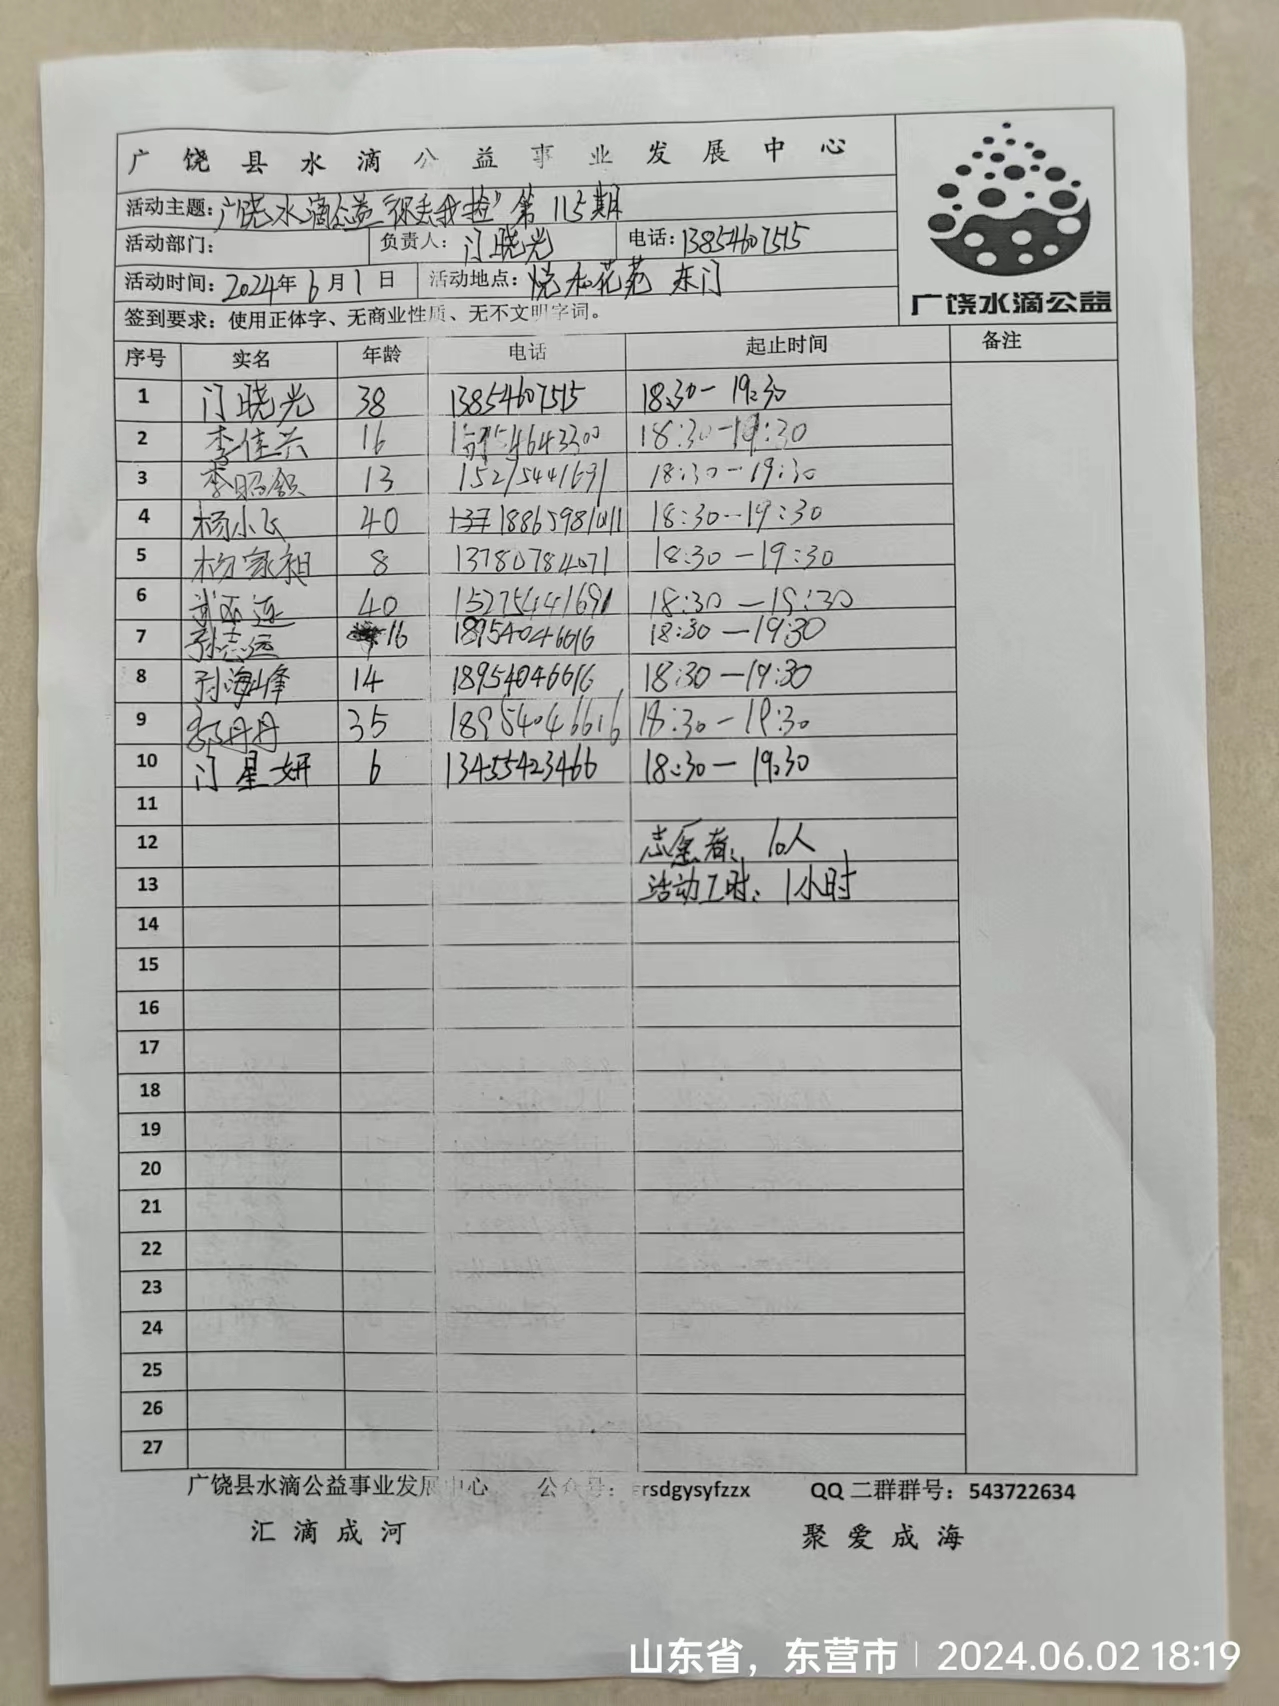 广饶县水滴公益事业发展中心
活动主题：广饶水滴公益“你丢我捡”第115期
活动部门： 负责人：门晓光 电话：13854607515
活动时间：2024年6月1日 活动地点：悦和花苑 东门
签到要求：使用正体字、无商业性质、无不文明字词。
广饶水滴公益
序号 实名 年龄 电话 起止时间 备注
1 门晓光 38 13854607515 18:30—19:30
2 李佳兴 16 54643300 18:30—19:30
3 李昭 13 15275441691 18:30—19:30
4 杨小飞 40 18865981011 18:30—19:30
5 杨家祖 8 13780784071 18:30—19:30
6 40 15275441691 18:30—19:30
7 孙志远 16 18954046616 18:30—19:30
8 孙海峰 14 18954046616 18:30—19:30
9 丹丹 35 18954046616 18:30—19:30
10 门星妍 6 13455423466 18:30—19:30
11
12 志愿者：10人
13 活动工时：1小时
14
15
16
17
18
19
20
21
22
23
24
25
26
27
广饶县水滴公益事业发展中心 公众号：grsdgysyfzzx QQ二群群号：543722634
汇滴成河 聚爱成海
山东省，东营市 | 2024.06.02 18:19